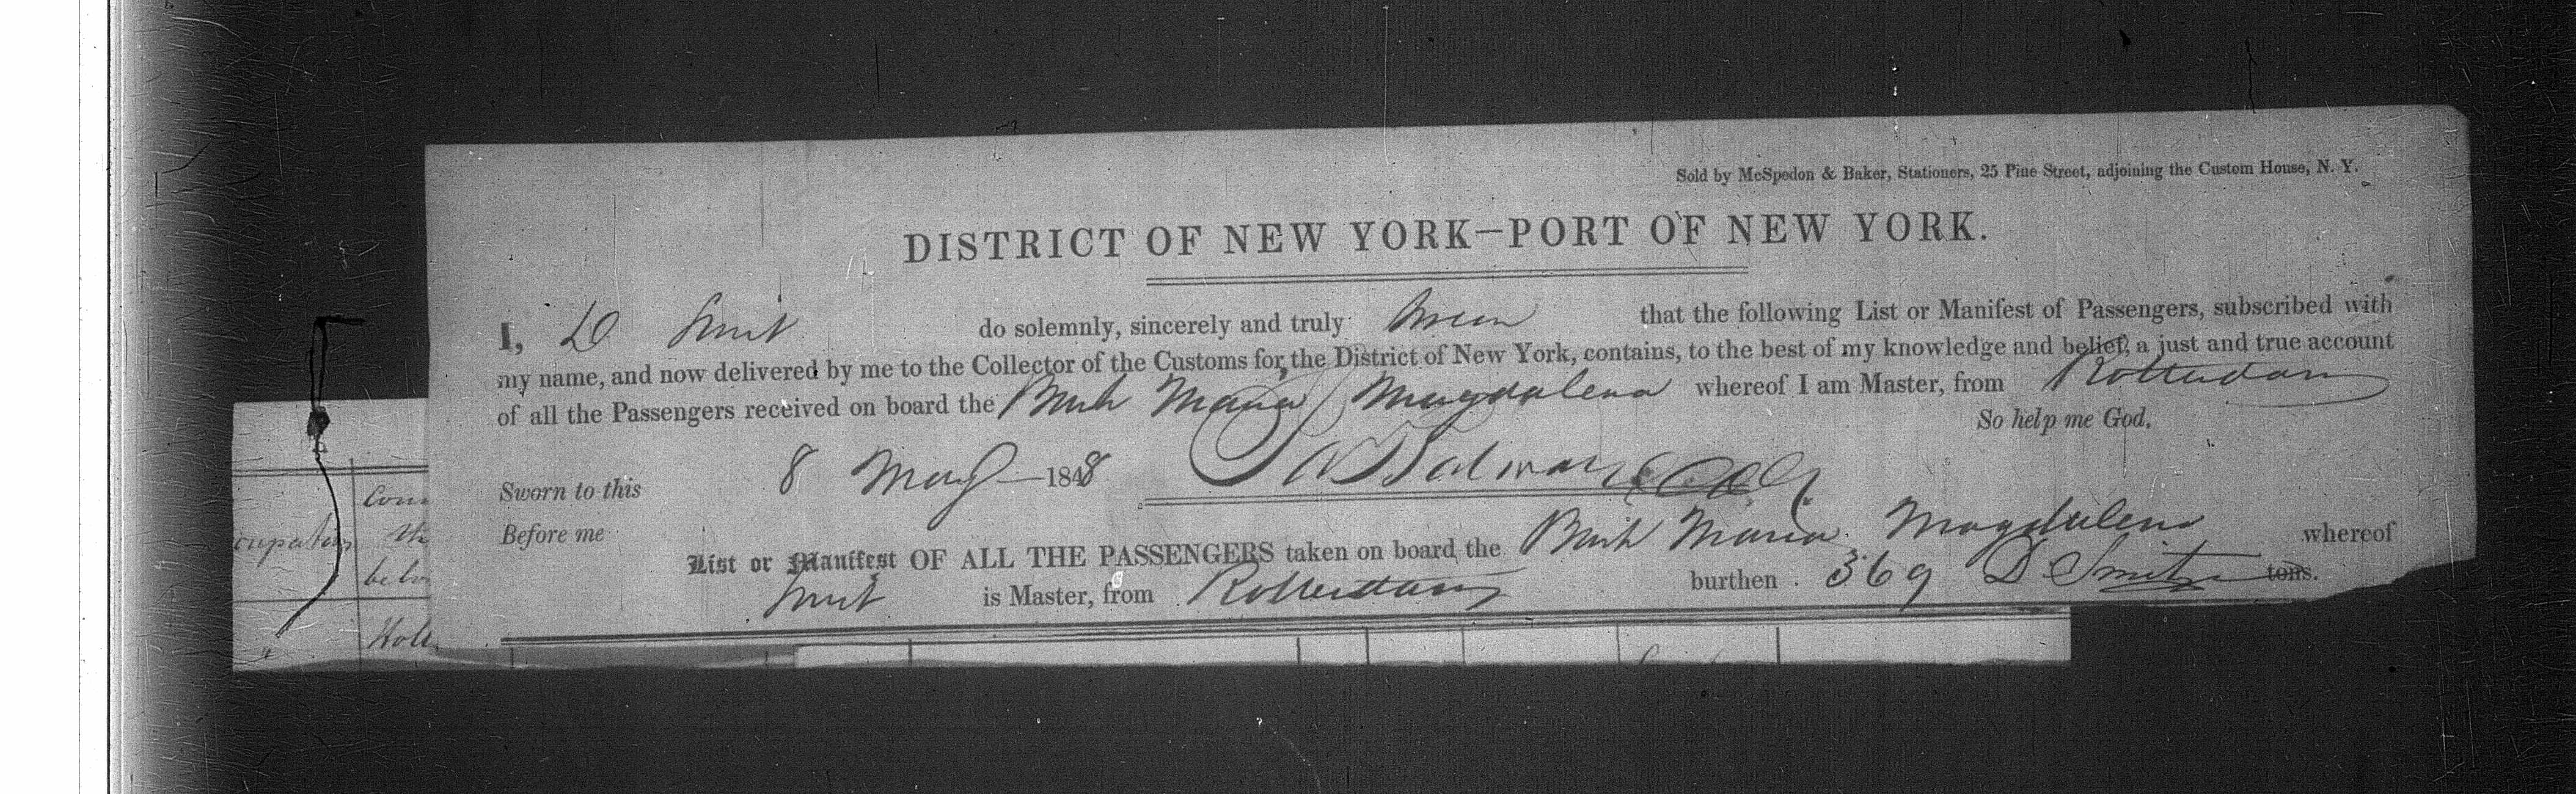 Sold by McSpedon & Baker, Stationers, 25 Pine Street, adjoining the Custom House, N. Y.
DISTRICT OF NEW YORK—PORT OF NEW YORK.
I, D Smit do solemnly, sincerely and truly swear that the following List or Manifest of Passengers, subscribed with
my name, and now delivered by me to the Collector of the Customs for the District of New York, contains, to the best of my knowledge and belief, a just and true account
of all the Passengers received on board the Maria Magdalena whereof I am Master, from Rotterdam
So help me God,
Sworn to this 8 May 1848
Before me
List or Manifest OF ALL THE PASSENGERS taken on board the Maria Magdalena whereof
Smit is Master, from Rotterdam burthen 369 D Smit tons.
cupation
th
Holl